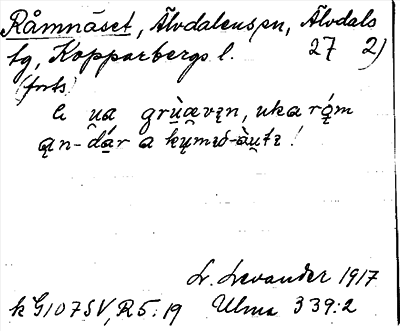 Råmnäset, Älvdalens sn, Älvdals
tg, Kopparbergs l. 27 2)
(forts.)
u̯a grùævın, uka rǫ́m
ąn-dár a
L. Levander 1917
k G107SV, R5:19 Ulma 339:2